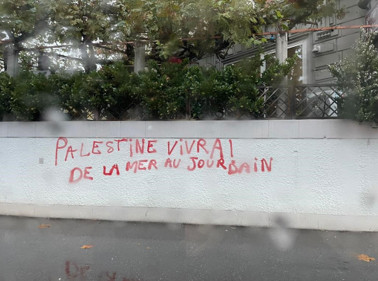 PALESTINE VIVRA!
DE LA MER AU JOURDAIN
DE